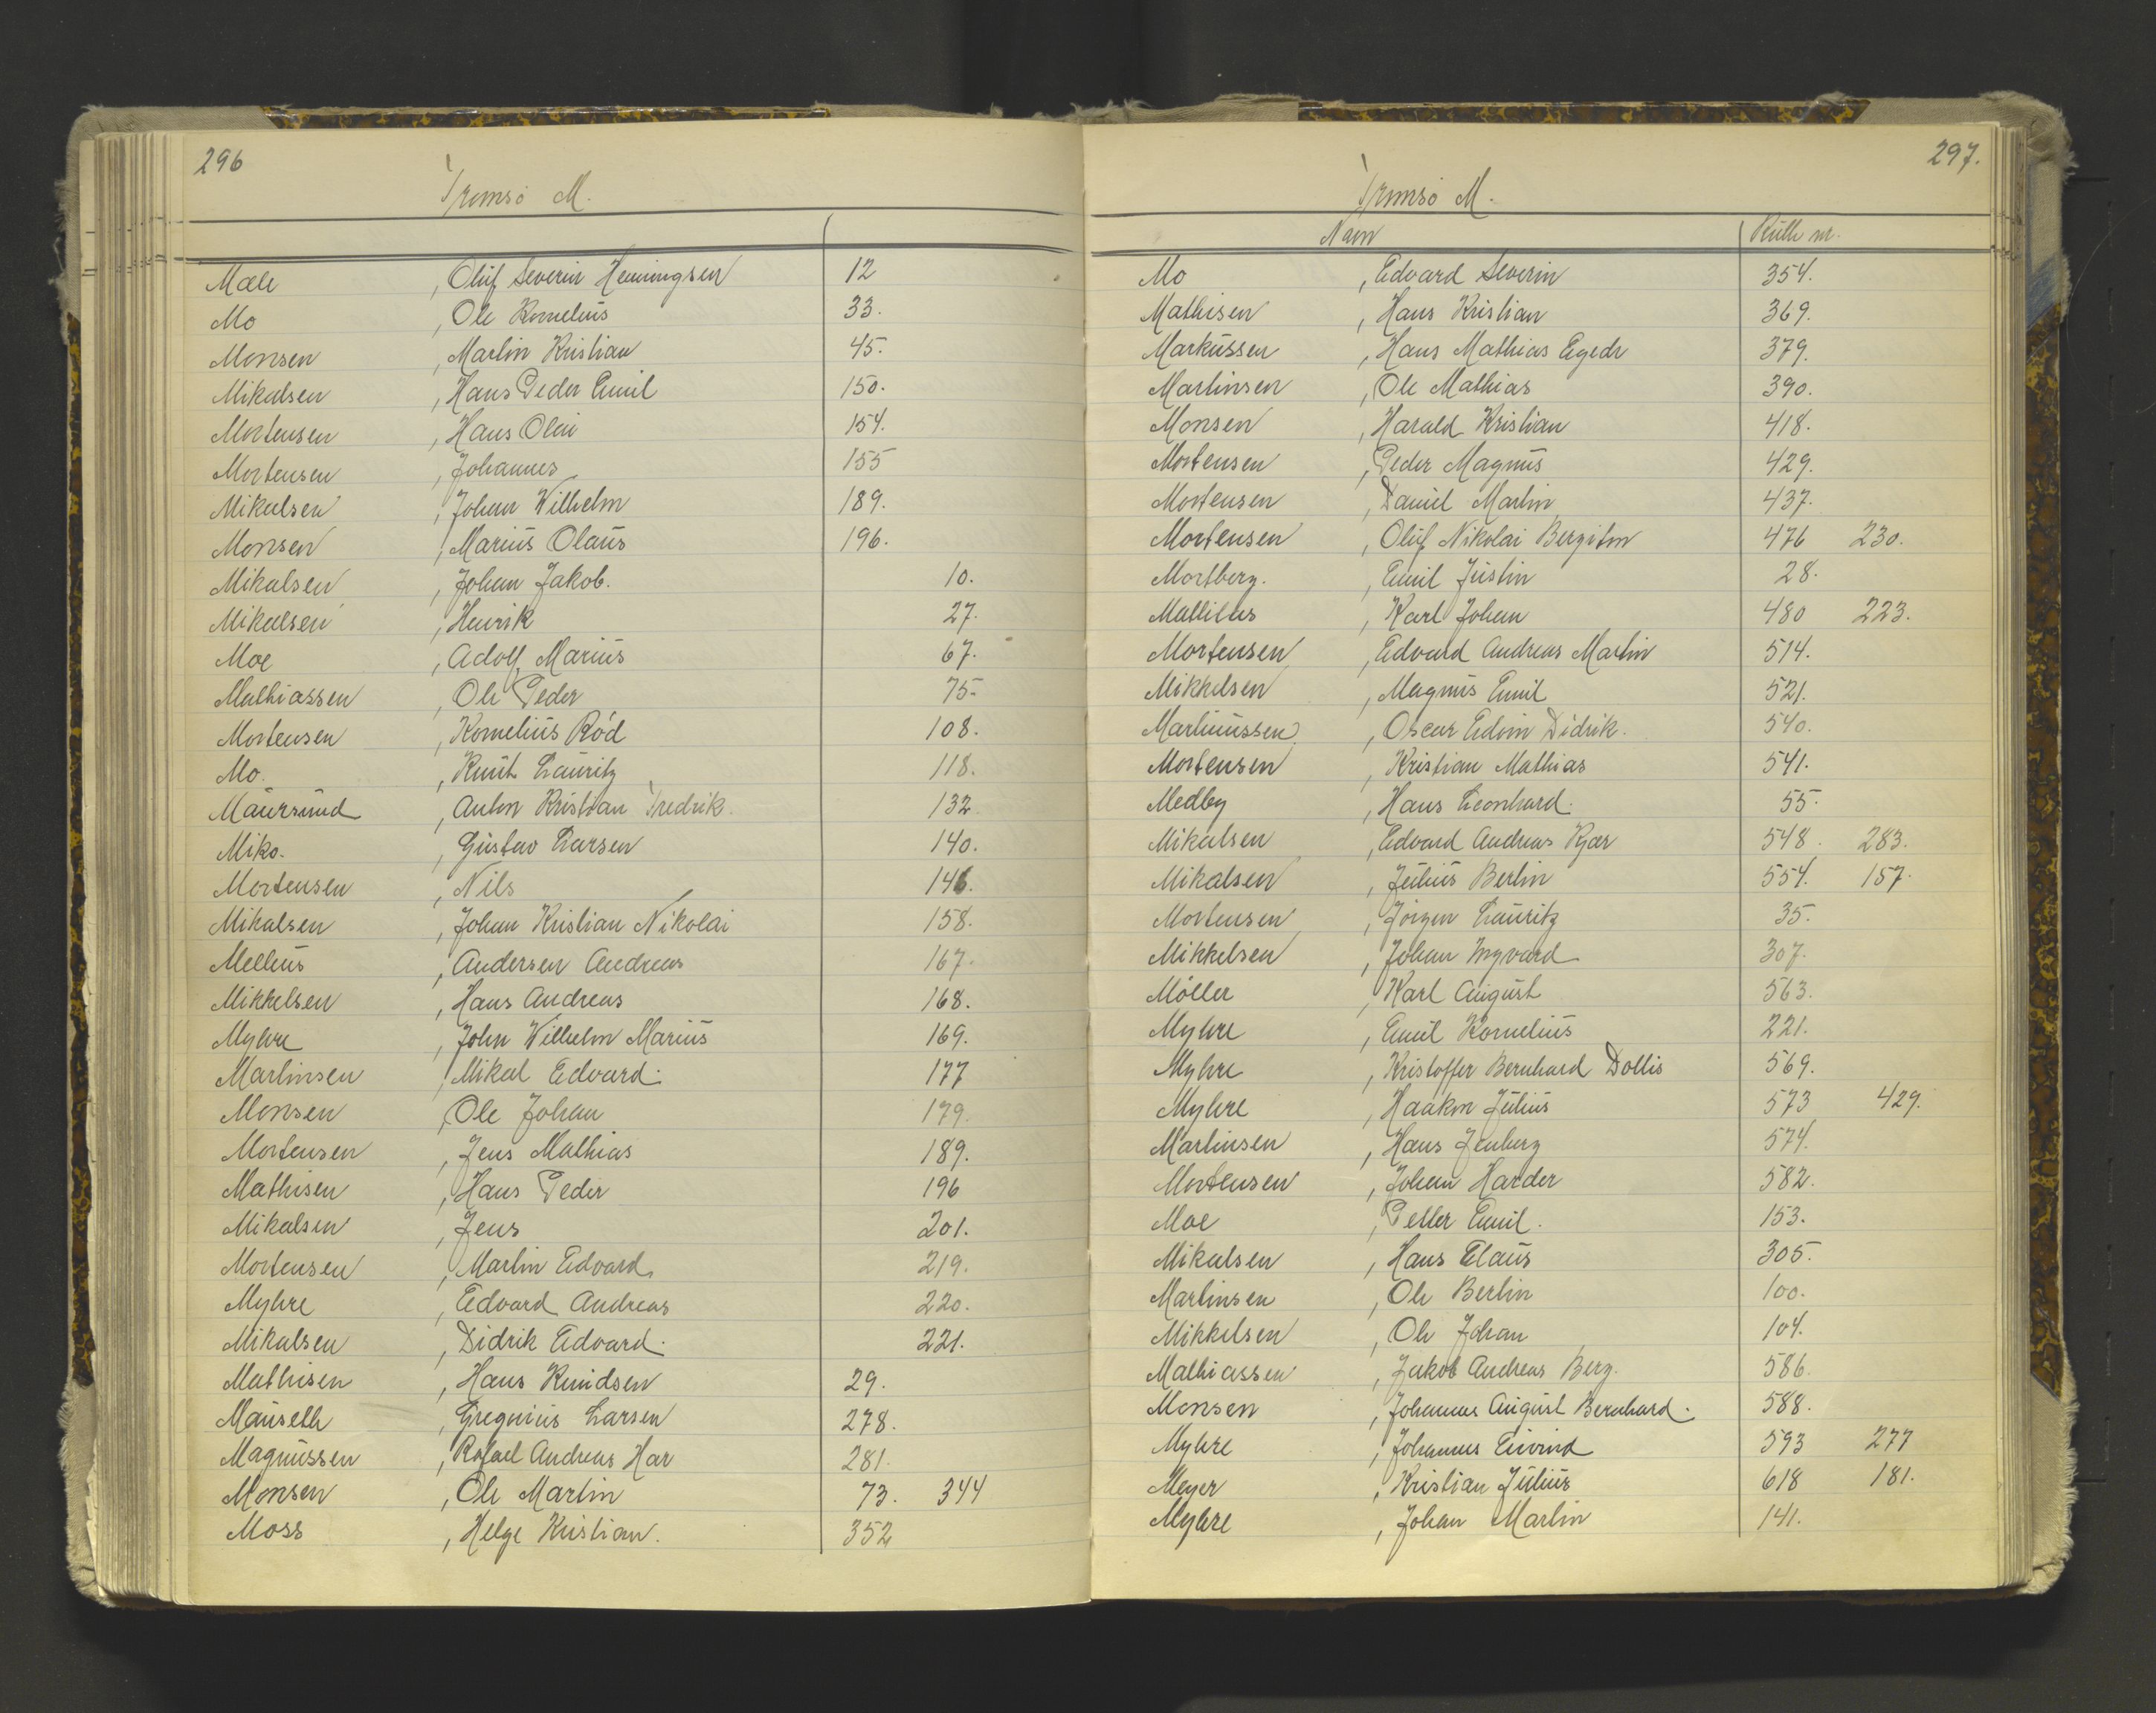 296
Tromsö M.
Mæle , Oluf Severin Henningsen 12
Mo , Ole Kornelius 33.
Monsen , Martin Kristian 45.
Mikalsen , Hans Peder Emil 150.
Mortensen , Hans Olai 154.
Mortensen , Johannes 155
Mikalsen , Johan Wilhelm 189.
Monsen , Marius Olaus 196.
Mikalsen , Johan Jakob. 10.
Mikalsen , Henrik 27.
Moe , Adolf Marius 67.
Mathiassen , Ole Peder 75.
Mortensen , Kornelius Röd 108.
Mo. , Knut Lauritz 118.
Maursund , Anton Kristian Fredrik. 132
Miko. , Gustav Larsen 140.
Mortensen , Nils 146.
Mikalsen , Johan Kristian Nikolai 158.
Mellius , Andersen Andreas 167.
Mikkelsen , Hans Andreas 168.
Myhre , John Wilhelm Marius 169.
Martinsen , Mikal Edvard. 177
Monsen , Ole Johan 179.
Mortensen , Jens Mathias 189.
Mathisen , Hans Peder 196
Mikalsen , Jens 201.
Mortensen , Martin Edvard 219.
Myhre , Edvard Andreas 220.
Mikalsen , Didrik Edvard. 221.
Mathisen , Hans Knudsen 29.
Mauseth , Gregorius Larsen 278.
Magnussen , Rafael Andreas Har 281.
Monsen , Ole Martin 73. 344
Moss , Helge Kristian. 352
297.
Tromsö M.
Navn Rulle nr.
Mo , Edvard Severin 354.
Mathisen , Hans Kristian 369.
Markussen , Hans Mathias Egede 379.
Martinsen , Ole Mathias 390.
Monsen , Harald Kristian 418.
Mortensen , Peder Magnus 429.
Mortensen , Daniel Martin 437.
Mortensen , Oluf Nikolai Bergiton 476 230.
Mortberg. , Emil Justin 28.
Karl Johan 480 223.
Mortensen , Edvard Andreas Martin 514.
Mikkelsen , Magnus Emil 521.
Martinussen , Oscar Edvin Didrik. 540.
Mortensen , Kristian Mathias 541.
Medby , Hans Leonhard. 55.
Mikalsen , Edvard Andreas Kjær 548. 283.
Mikalsen , Julius Berlin 554. 157.
Mortensen , Jörgen Lauritz 35.
Mikkelsen , Johan Ingvard 307.
Möller , Karl August 563.
Myhre , Emil Kornelius 221.
Myhre , Kristoffer Bernhard Dollis 569.
Myhre , Haakon Julius 573 429.
Martinsen , Hans Jenberg 574.
Mortensen , Johan Harder 582.
Moe , Petter Emil. 153.
Mikalsen , Hans Elaus 305.
Martinsen , Ole Berlin 100.
Mikkelsen , Ole Johan 104.
Mathiassen , Jakob Andreas Berg. 586.
Monsen , Johannes August Bernhard. 588.
Myhre , Johannes Eivind 593 277
Meyer , Kristian Julius 618 181.
Myhre , Johan Martin 141.